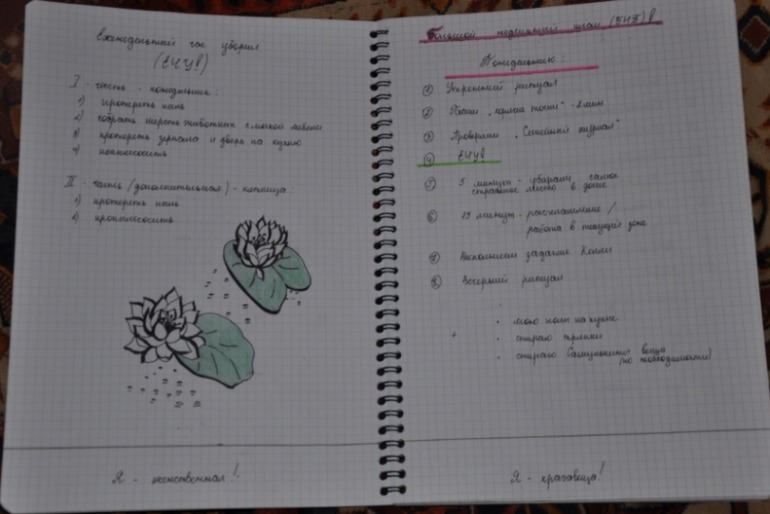 Еженедельный час уборки
(ЕЧУв)
I - часть - понедельник:
1) протереть пыль
2) собрать шерсть животных с мягкой мебели
3) протереть зеркала и дверь на кухню
4) пропылесосить
II - часть (дополнительная) - пятница
1) протереть пыль
2) пропылесосить
Я - женственная!
Большой недельный план (БНП) в
Понедельник:
1 Утренний ритуал
2 "горячие точки" - 2 мин
3 Проверяем "Семейный журнал"
4 ЕЧУв
5 5 минут - убираем самое
страшное место в доме
6 15 минут - расхламление /
работа в текущей зоне
7 Выполняем задание Келли
8 Вечерний ритуал
+
• мою пол на кухне
• стираю тряпки
• стираю вещи
(по необходимости)
Я - красавица!